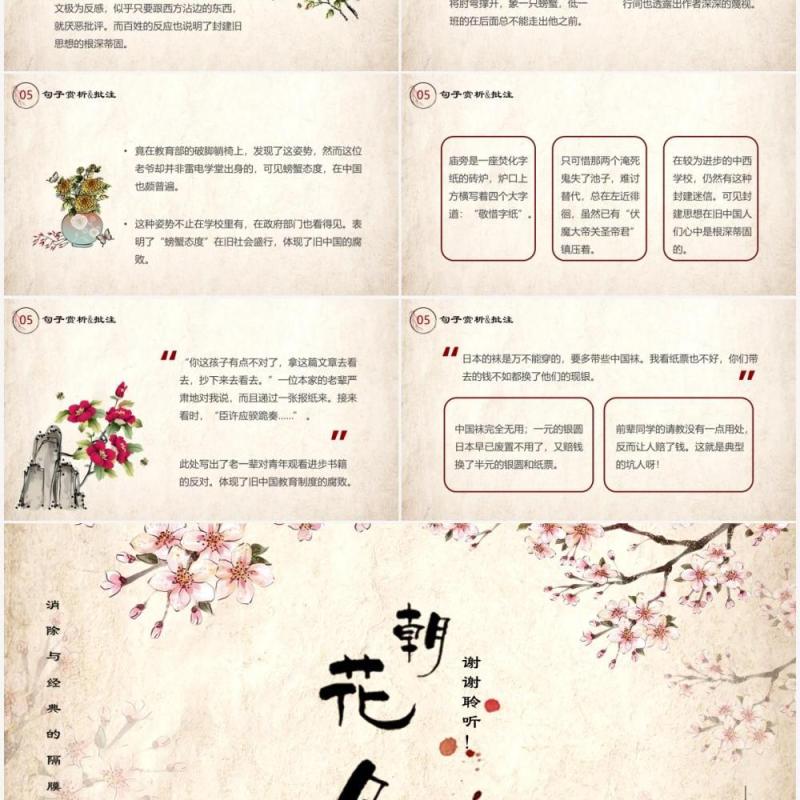 文极为反感，似乎只要跟西方沾边的东西，
就厌恶批评。而百姓的反应也说明了封建旧
思想的根深蒂固。
将肘弯撑开，象一只螃蟹，低一
班的在后面总不能走出他之前。
行间也透露出作者深深的蔑视。
05 句子赏析&批注
• 竟在教育部的破脚躺椅上，发现了这姿势，然而这位
老爷却并非雷电学堂出身的，可见螃蟹态度，在中国
也颇普遍。
• 这种姿势不止在学校里有，在政府部门也看得见。表
明了“螃蟹态度”在旧社会盛行，体现了旧中国的腐
败。
05 句子赏析&批注
庙旁是一座焚化字
纸的砖炉，炉口上
方横写着四个大字
道：“敬惜字纸”。
只可惜那两个淹死
鬼失了池子，难讨
替代，总在左近徘
徊，虽然已有“伏
魔大帝关圣帝君”
镇压着。
在较为进步的中西
学校，仍然有这种
封建迷信。可见封
建思想在旧中国人
们心中是根深蒂固
的。
05 句子赏析&批注
“你这孩子有点不对了，拿这篇文章去看
去，抄下来去看去。”一位本家的老辈严
肃地对我说，而且递过一张报纸来。接来
看时，“臣许应骙跪奏……”。
此处写出了老一辈对青年观看进步书籍
的反对。体现了旧中国教育制度的腐败。
05 句子赏析&批注
日本的袜是万不能穿的，要多带些中国袜。我看纸票也不好，你们带
去的钱不如都换了他们的现银。
中国袜完全无用；一元的银圆
日本早已废置不用了，又赔钱
换了半元的银圆和纸票。
前辈同学的请教没有一点用处，
反而让人赔了钱。这就是典型
的坑人呀！
消除与经典的隔膜
朝花夕
谢谢聆听！